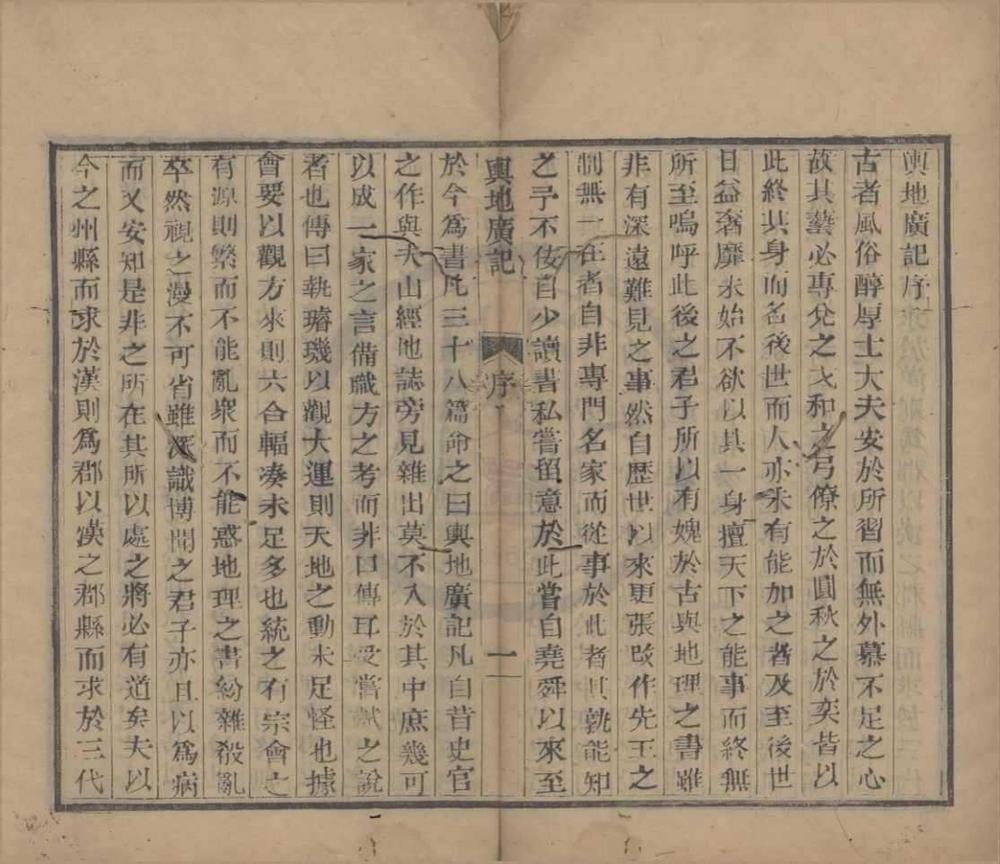 輿地廣記序
古者風俗醇厚士大夫安於所習而無外慕不足之心
故其藝必專兊之戈和之弓僚之於圓秋之於奕皆以
此終其身而名後世而人亦未有能加之者及至後世
日益奢靡未始不欲以其一身擅天下之能事而終無
所至嗚呼此後之君子所以有媿於古與地理之書雖
非有深遠難見之事然自歷世以來更張改作先王之
制無一在者自非專門名家而從事於此者其孰能知
之予不佞自少讀書私嘗留意於此嘗自堯舜以來至
輿地廣記
序
一
於今爲書凡三十八篇命之曰輿地廣記凡自昔史官
之作與夫山經地誌旁見雜出莫不入於其中庶幾可
以成一家之言備職方之考而非口傳耳受嘗試之說
者也傳曰執璿璣以觀大運則天地之動未足怪也據
會要以觀方來則六合輻凑未足多也統之有宗會之
有源則繁而不能亂衆而不能惑地理之書紛雜殽亂
卒然視之漫不可省雖深識博聞之君子亦且以爲病
而又安知是非之所在其所以處之將必有道矣夫以
今之州縣而求於漢則爲郡以漢之郡縣而求於三代